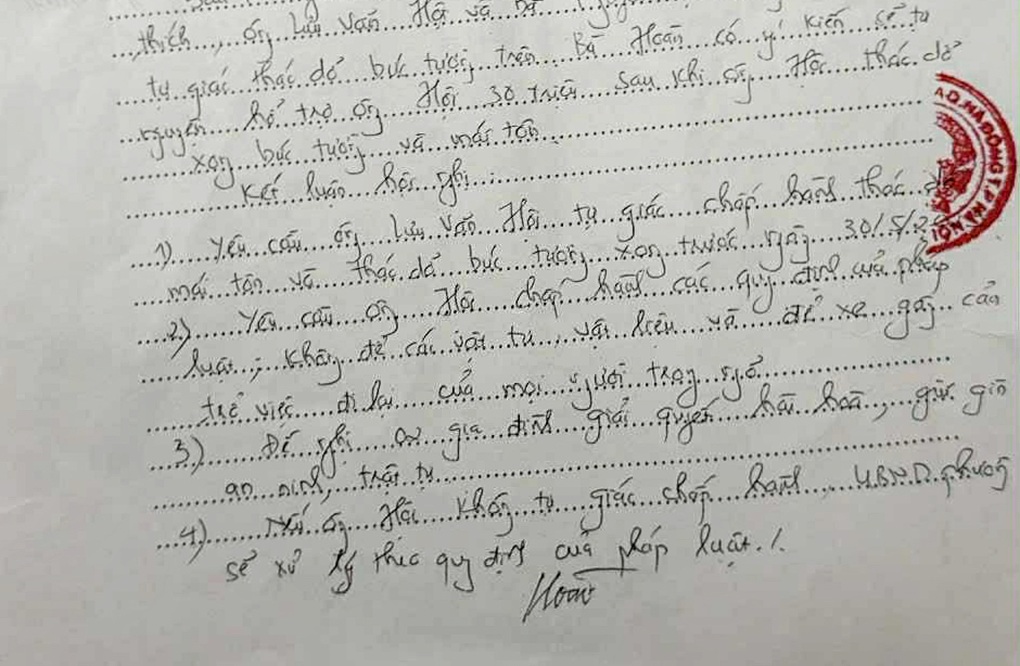 thích, ông Lưu Văn Hội và bà
tự giác tháo dỡ bức tường trên. Bà Hoan có ý kiến sẽ tự
nguyện hỗ trợ ông Hội 30 triệu sau khi ông Hội tháo dỡ
xong bức tường và mái tôn.
Kết luận hội nghị:
1) Yêu cầu ông Lưu Văn Hội tự giác chấp hành tháo dỡ
mái tôn và tháo dỡ bức tường xong trước ngày 30/5/2
2) Yêu cầu ông Hội chấp hành các quy định của pháp
luật; không để các vật tư, vật liệu và để xe gây cản
trở việc đi lại của mọi người trong ngõ.
3) Đề nghị gia đình giải quyết hài hoà, giữ gìn
an ninh, trật tự.
4) Nếu ông Hội không tự giác chấp hành, UBND phường
sẽ xử lý theo quy định của pháp luật./.
Hoan
Q. HÀ ĐÔNG T.P HÀ NỘI